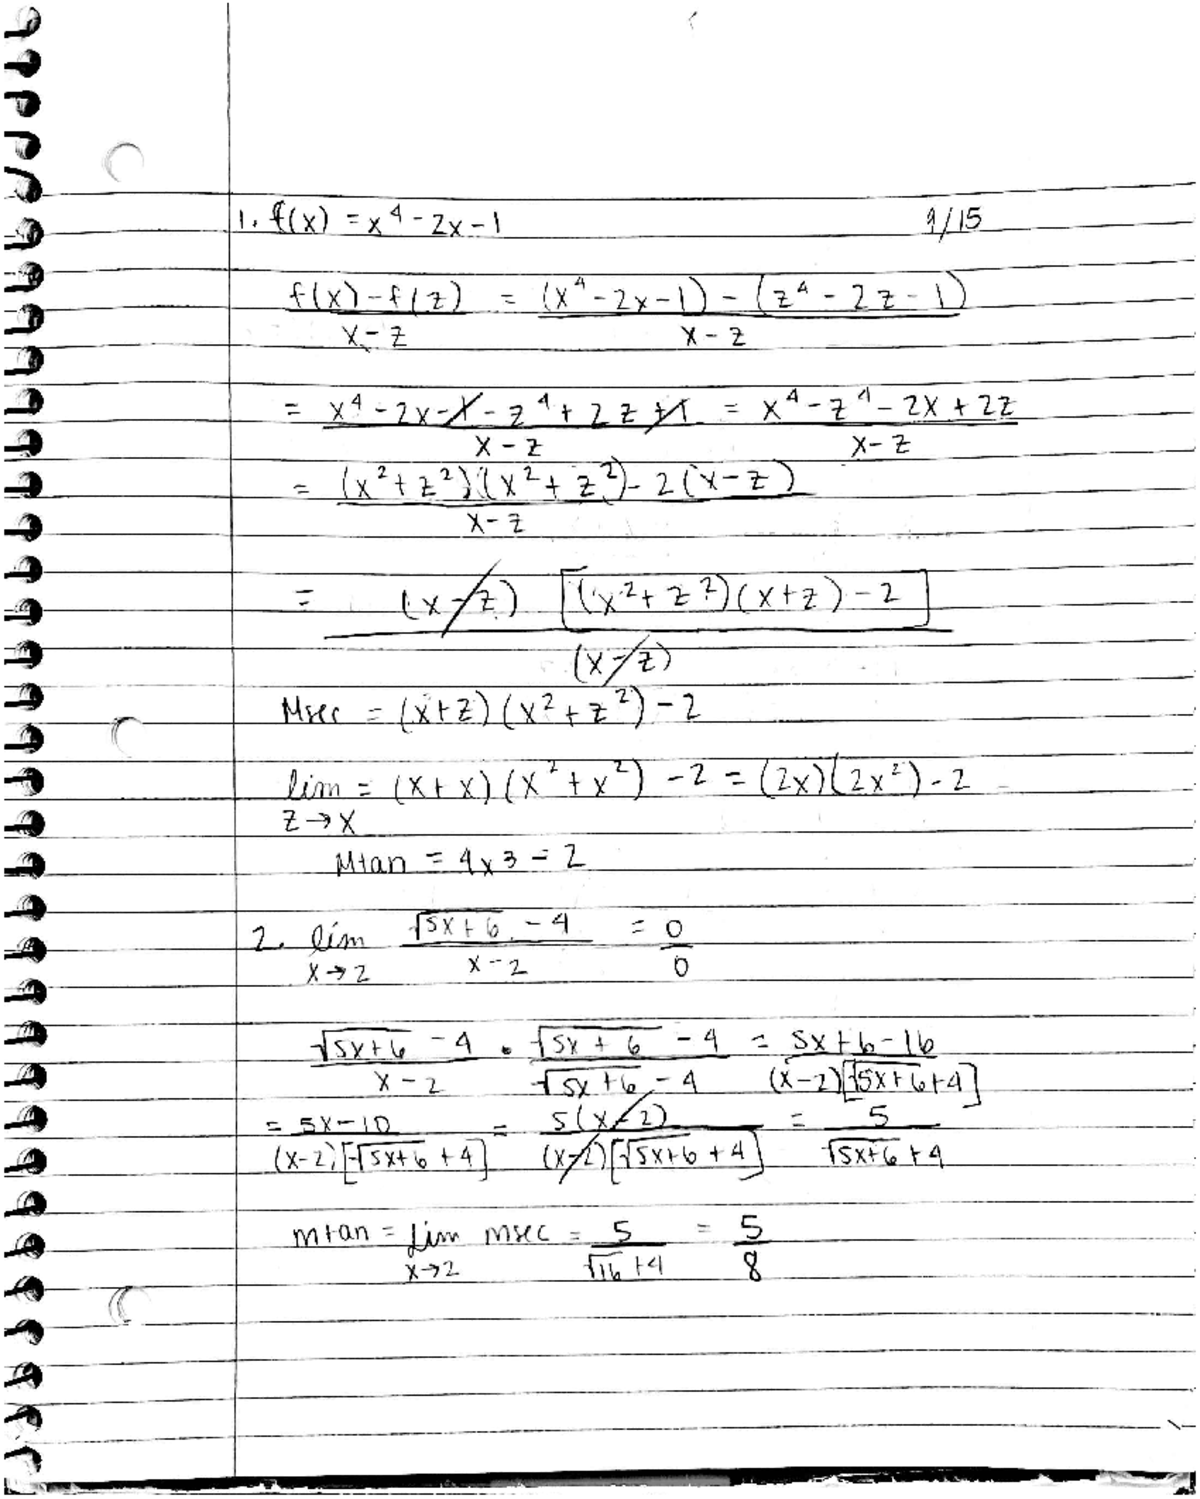 1. f(x) = x⁴ - 2x - 1 9/15
f(x) - f(z) / x - z = (x⁴ - 2x - 1) - (z⁴ - 2z - 1) / x - z
= x⁴ - 2x - 1 - z⁴ + 2z + 1 / x - z = x⁴ - z⁴ - 2x + 2z / x - z
= (x² + z²)(x² + z²) - 2(x - z) / x - z
= (x - z) [(x² + z²)(x + z) - 2] / (x - z)
Msec = (x + z)(x² + z²) - 2
lim z → x = (x + x)(x² + x²) - 2 = (2x)(2x²) - 2
Mtan = 4x3 - 2
2. lim x → 2 √5x+6 - 4 / x - 2 = 0/0
√5x+6 - 4 / x - 2 • √5x+6 - 4 / √5x+6 - 4 = 5x + 6 - 16 / (x - 2)[√5x+6 + 4]
= 5x - 10 / (x - 2)[√5x+6 + 4] = 5(x - 2) / (x - 2)[√5x+6 + 4] = 5 / √5x+6 + 4
mtan = Lim x → 2 msec = 5 / √16 + 4 = 5/8